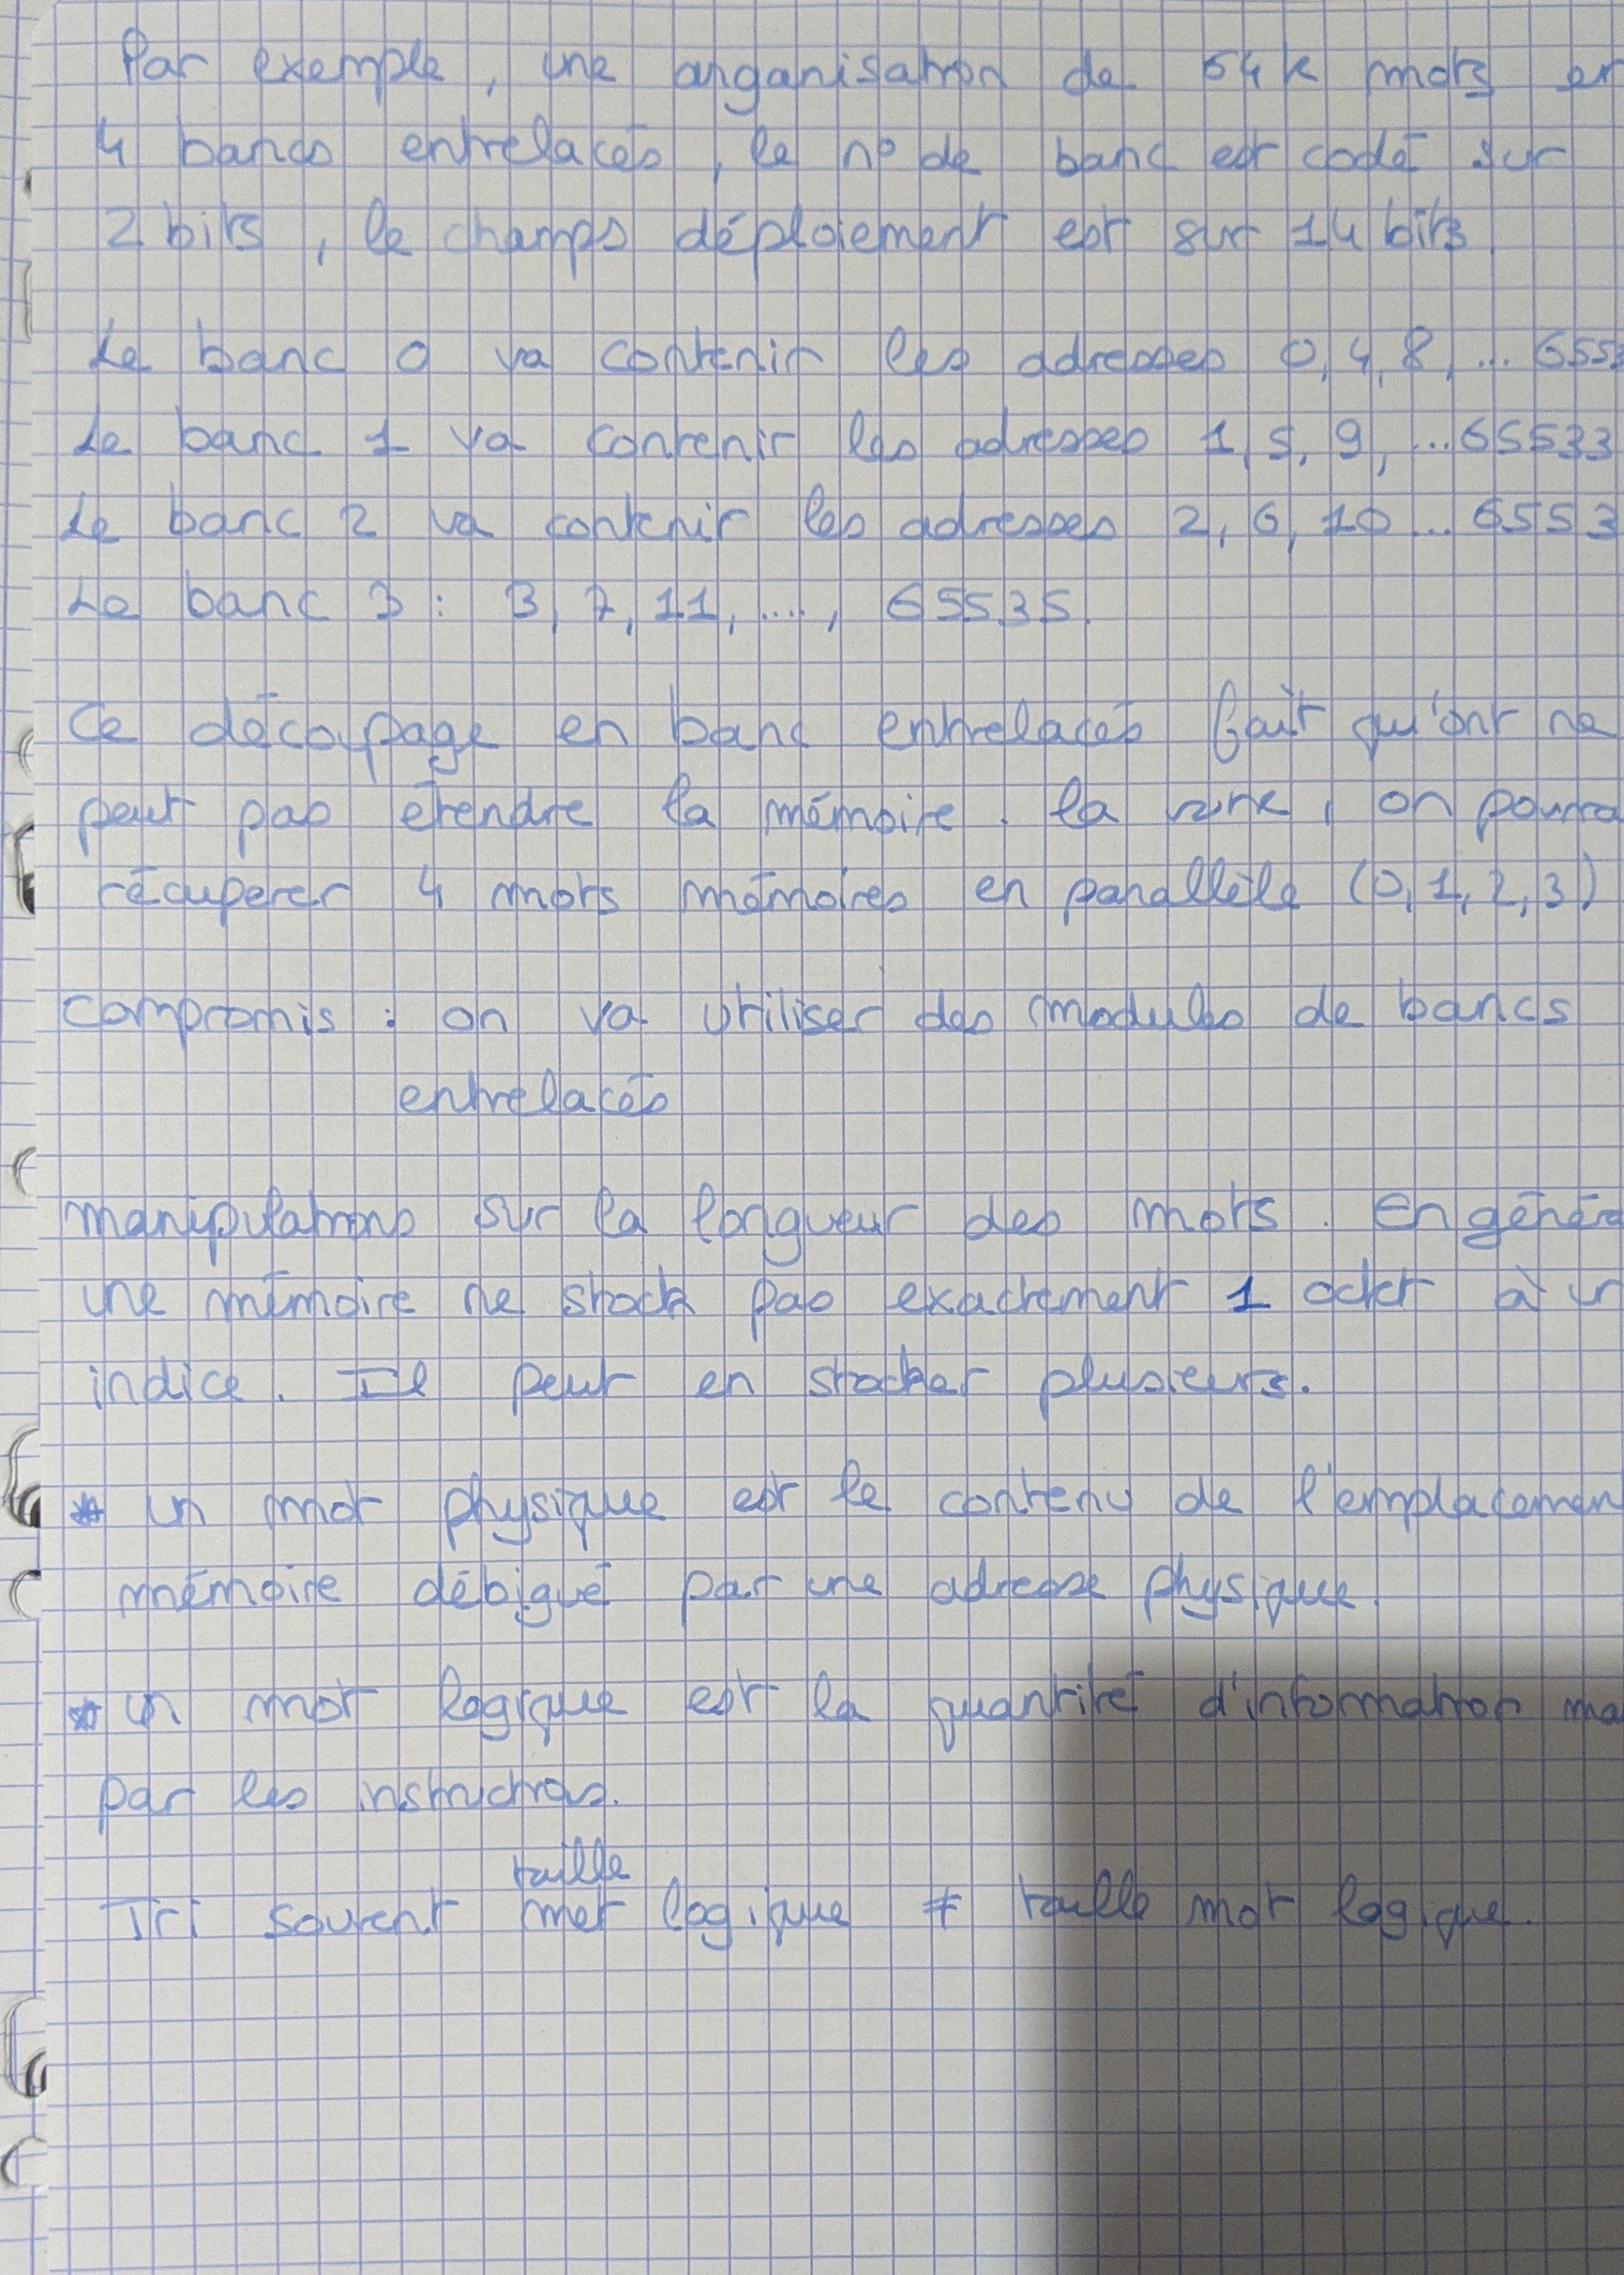 Par exemple, une organisation de 64k mots en
4 bancs entrelacés, le n° de banc est codé sur
2 bits, le champs déploiement est sur 14 bits.
Le banc 0 va contenir les adresses 0, 4, 8, ... 6553
Le banc 1 va contenir les adresses 1, 5, 9, ... 65533
Le banc 2 va contenir les adresses 2, 6, 10 ... 6553
Le banc 3 : 3, 7, 11, ...., 65535.
Ce découpage en banc entrelacés fait qu'ont ne
peut pas étendre la mémoire. la , on pourra
récuperer 4 mots mémoires en parallèle (0, 1, 2, 3)
compromis : on va utiliser des modules de bancs
entrelacés
manipulations sur la longueur des mots. En génér
une mémoire ne stock pas exactement 1 octet à
indice. Il peut en stocker plusieurs.
* un mot physique est le contenu de l'emplacemen
mémoire débigué par une adresse physique.
* un mot logique est la quantité d'information ma
par les instructions.
taille
Tri souvent mot logique ≠ taille mot logique.